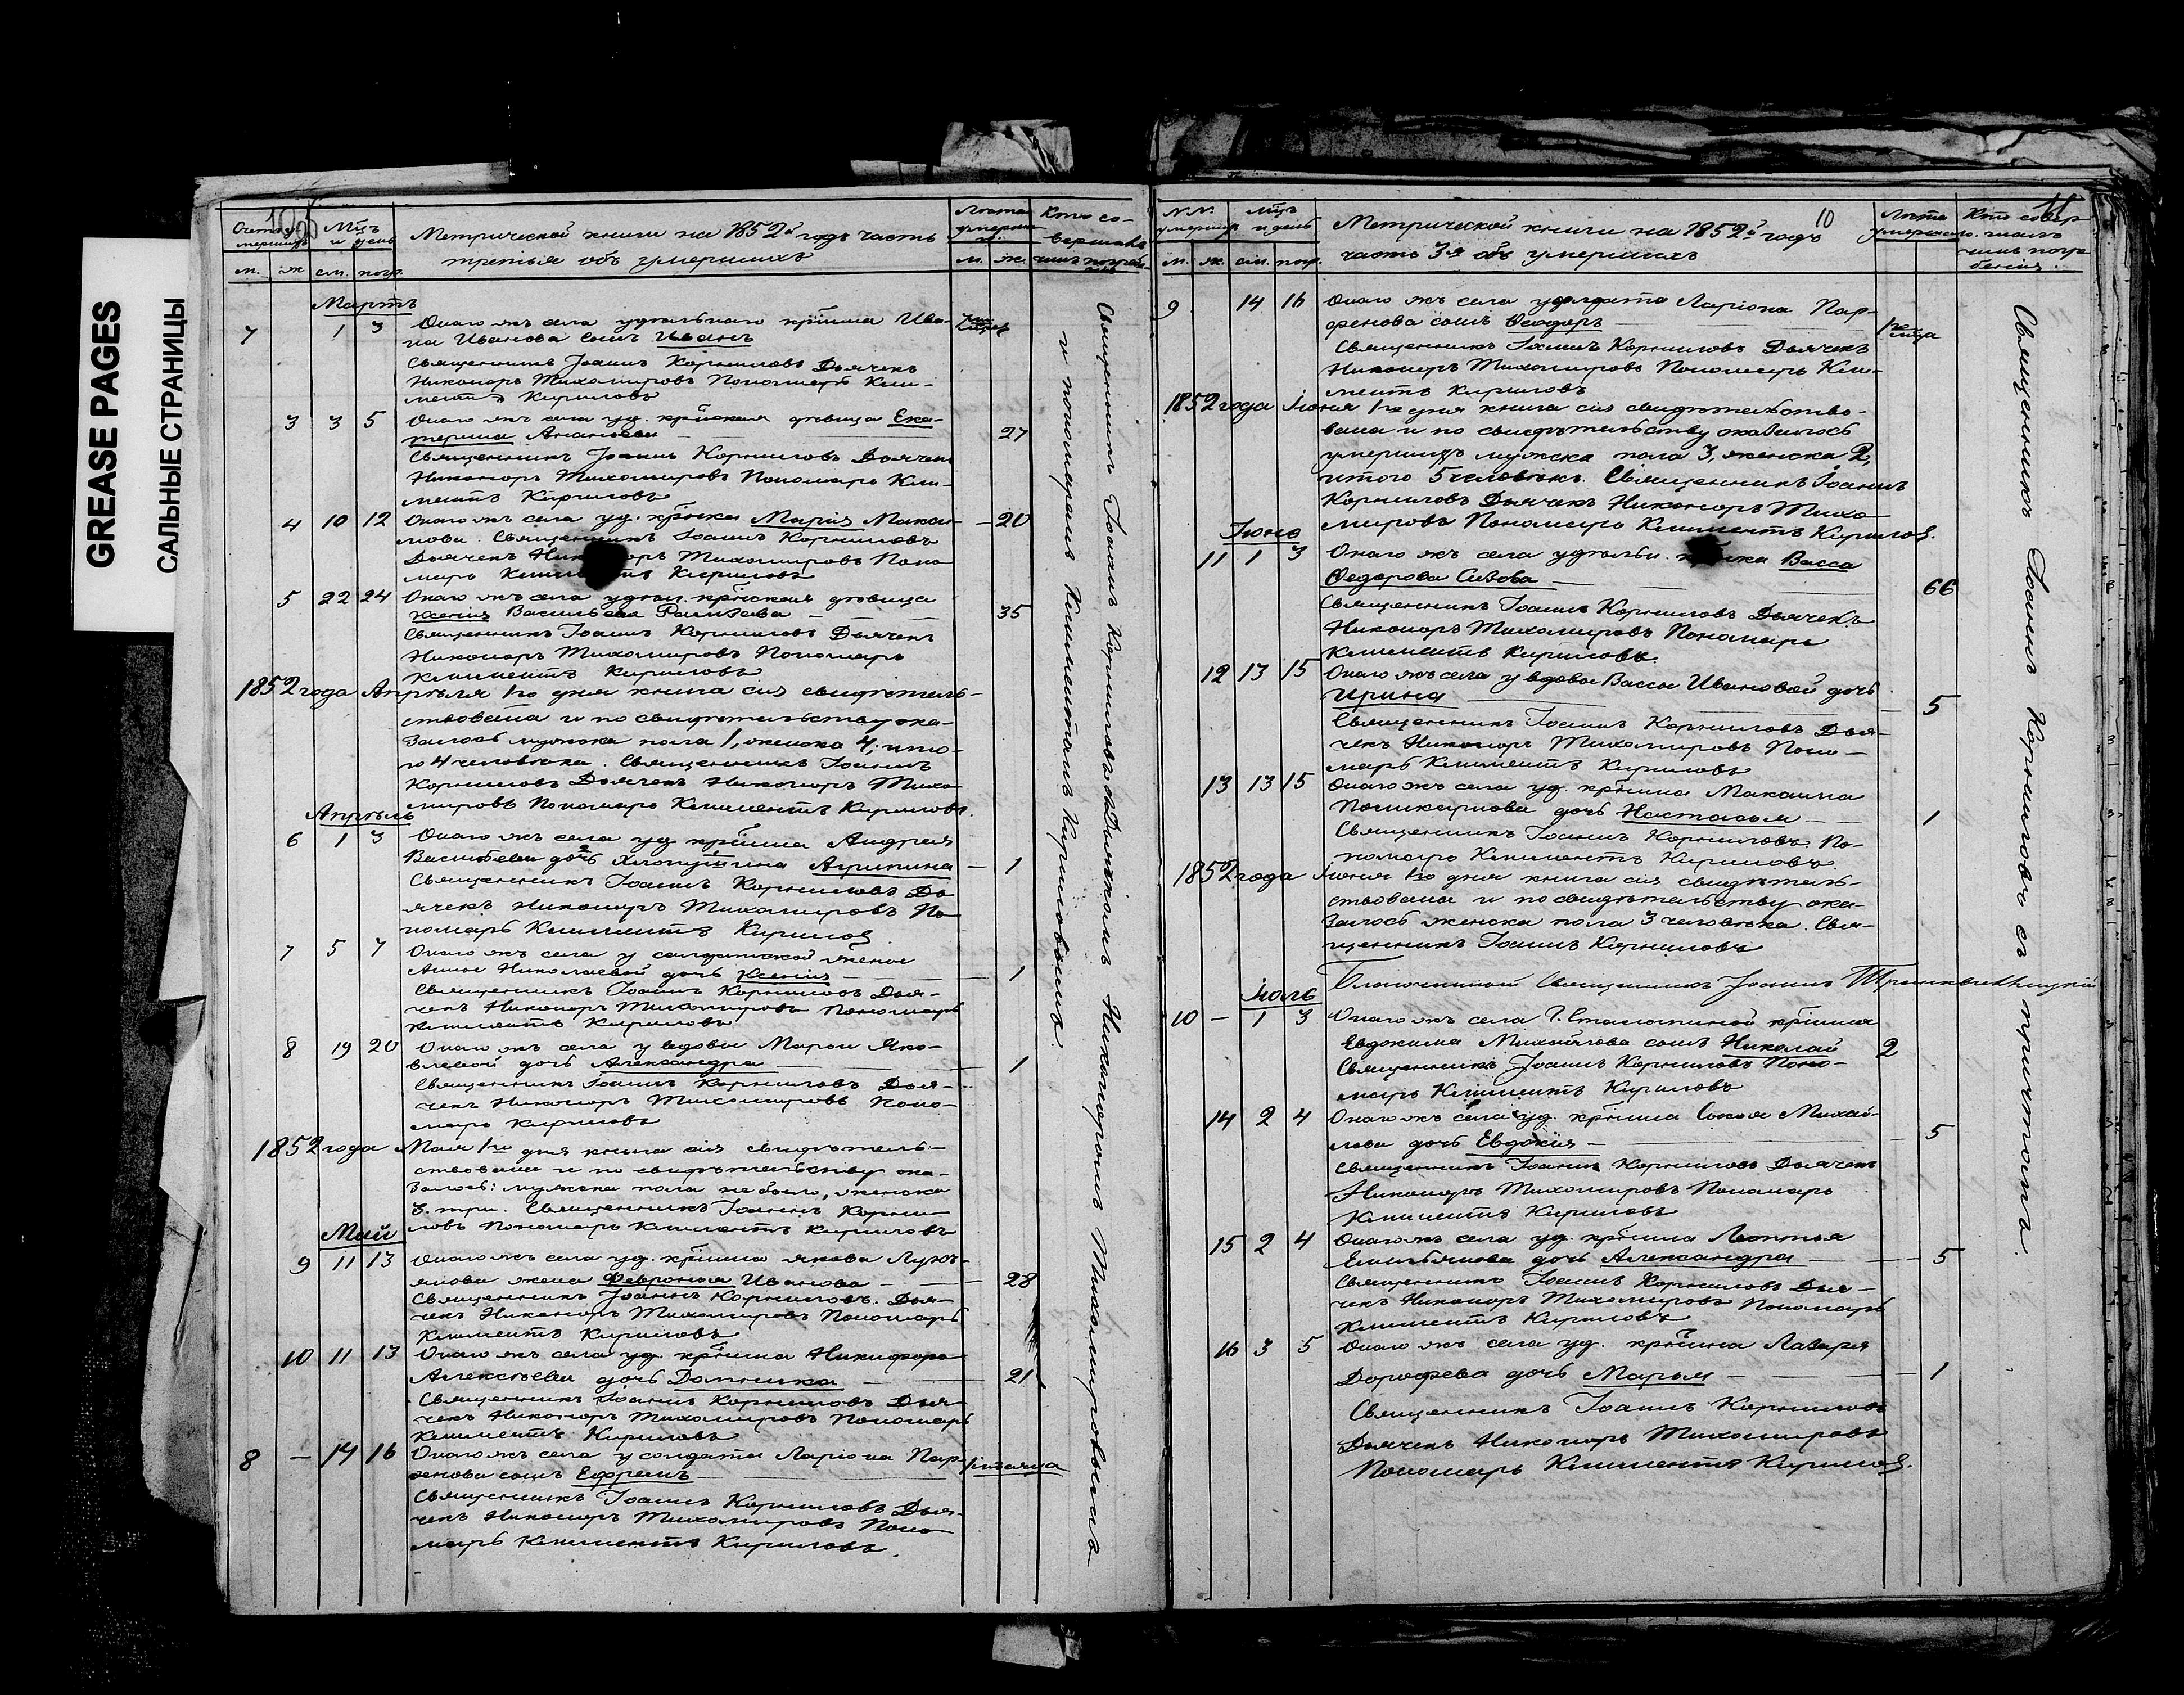 GREASE PAGES
САЛЬНЫЕ СТРАНИЦЫ
Метрической книги на 1852й годъ часть
третья объ умершихъ
Лѣта
Кто со-
вершалъ
м. ж. см. погр. м. ж.
Мартъ
7 1 3 Онаго жъ села удѣльнаго крѣшна Ива-
на Иванова сынъ Иванъ
Священникъ Іоаннъ Корниловъ Дьячекъ
Никаноръ Тихомировъ Пономарь Кли-
ментъ Кириловъ
3 3 5 Онаго жъ села уд. крѣнская дѣвица Ека-
терина Ананьева 27
Священникъ Іоаннъ Корниловъ Дьячекъ
Никаноръ Тихомировъ Пономарь Кли-
ментъ Кириловъ
4 10 12 Онаго жъ села уд. крѣнка Марія Макси- 20
мова. Священникъ Іоаннъ Корниловъ
Дьячекъ Никаноръ Тихомировъ Поно
марь Климентъ Кириловъ
5 22 24 Онаго жъ села удѣл. крѣнская дѣвица
Ксенія Васильева 35
Священникъ Іоаннъ Корниловъ Дьячекъ
Никаноръ Тихомировъ Пономарь
Климентъ Кириловъ
1852 года Апрѣля 1го дня книга сія свидѣтель-
ствована и по свидѣтельству ока-
залось мужска пола 1, женска 4, ито-
го 4 человѣка. Священникъ Іоаннъ
Корниловъ Дьячекъ Никаноръ Тихо
мировъ Пономарь Климентъ Кириловъ.
Апрѣль
6 1 3 Онаго жъ села уд. крѣшна Андрея
Васильева дочь Хлопушина Агрипина 1
Священникъ Іоаннъ Корниловъ Дь
ячекъ Никаноръ Тихомировъ По
номарь Климентъ Кирилов
7 5 7 Онаго жъ села у солдатской жены
Анны Николаевой дочь Ксенія 1
Священникъ Іоаннъ Корниловъ Дья-
чекъ Никаноръ Тихомировъ Пономарь
Климентъ Кириловъ
8 19 20 Онаго жъ села у вдовы Марьи Яко-
влевой дочь Александра 1
Священникъ Іоаннъ Корниловъ Дья-
чекъ Никаноръ Тихомировъ Поно-
марь Кириловъ
1852 года Мая 1го дня книга сія свидѣтель-
ствована и по свидѣтельству ока-
залось: мужска пола не было, женска
3. три. Священникъ Іоаннъ Корни-
ловъ Пономарь Климентъ Кириловъ
Май
9 11 13 Онаго жъ села уд. крѣшна Якова Лукь-
янова жена Февронья Иванова 28
Священникъ Іоаннъ Корниловъ. Дья-
чекъ Никаноръ Тихомировъ Пономарь
Климентъ Кириловъ
10 11 13 Онаго жъ села уд. крѣшна Никифора
Алексѣева дочь Домника 21
Священникъ Іоаннъ Корниловъ Дья-
чекъ Никаноръ Тихомировъ Пономарь
Климентъ Кириловъ
8 - 14 16 Онаго жъ села у солдата Ларіона Пар-
фенова сынъ Ефремъ
Священникъ Іоаннъ Корниловъ Дья-
чекъ Никаноръ Тихомировъ Поно
марь Климентъ Кириловъ.
Священникъ Іоаннъ Корниловъ съ Дьячкомъ Никаноромъ Тихомировымъ
и пономаремъ Климентомъ Кириловымъ.
Метрической книги на 1852й годъ 10
часть 3я объ умершихъ
Лѣта
м. ж. см. погр.
9 14 16 Онаго жъ села у солдата Ларіона Пар-
фенова сынъ Ѳеодоръ
Священникъ Іоаннъ Корниловъ Дьячекъ
Никаноръ Тихомировъ Пономарь Кли-
ментъ Кириловъ
1852 года Іюня 1го дня книга сія свидѣтельство-
вана и по свидѣтельству оказалось
умершихъ мужска пола 3, женска 2,
итого 5 человѣкъ. Священникъ Іоаннъ
Корниловъ Дьячекъ Никаноръ Тихо
мировъ Пономарь Климентъ Кирилов.
Іюнь
11 1 3 Онаго жъ села удѣльн. Васса
Ѳедорова Сизова 66
Священникъ Іоаннъ Корниловъ Дьячекъ
Никаноръ Тихомировъ Пономарь
Климентъ Кириловъ.
12 13 15 Онаго жъ села у вдовы Вассы Ивановой дочь
Ирина 5
Священникъ Іоаннъ Корниловъ Дья-
чекъ Никаноръ Тихомировъ Поно-
марь Климентъ Кириловъ
13 13 15 Онаго жъ села уд. крѣшна Максима
Поликарпова дочь Настасья 1
Священникъ Іоаннъ Корниловъ По-
номарь Климентъ Кириловъ
1852 года Іюня 1го дня книга сія свидѣтель-
ствована и по свидѣтельству ока-
залось женска пола 3 человѣка. Свя-
щенникъ Іоаннъ Корниловъ
Благочинный Священникъ Іоаннъ
Іюль
10 - 1 3 Онаго жъ села Г. Столыпиной крѣшна
Евдокима Михайлова сынъ Николай 2
Священникъ Іоаннъ Корниловъ Поно-
марь Климентъ Кириловъ
14 2 4 Онаго жъ села уд. крѣшна Михай-
лова дочь Евдокія 5
Священникъ Іоаннъ Корниловъ Дьячекъ
Никаноръ Тихомировъ Пономарь
Климентъ Кириловъ
15 2 4 Онаго жъ села уд. крѣшна Леонтья
Емельянова дочь Александра 5
Священникъ Іоаннъ Корниловъ Дья-
чекъ Никаноръ Тихомировъ Пономарь
Климентъ Кириловъ
16 3 5 Онаго жъ села уд. крѣшна Лазаря
Дорофева дочь Марья 1
Священникъ Іоаннъ Корниловъ
Дьячекъ Никаноръ Тихомировъ
Пономарь Климентъ Кирилов.
Священникъ Іоаннъ Корниловъ съ причтомъ.